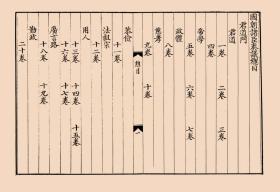 國朝諸臣奏議總目
君道門
君道
一卷　二卷　三卷
四卷
帝學
五卷　六卷　七卷
政體
八卷
慈孝
九卷　十卷
總目
恭儉
十一卷
法祖宗
十二卷
用人
十三卷　十四卷　十五卷
十六卷　十七卷
廣言路
十八卷　十九卷
勤政
二十卷